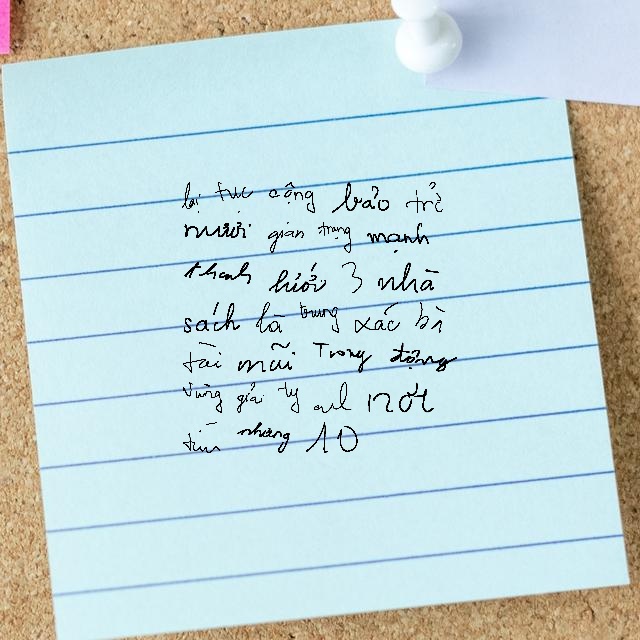 bị tục công bảo trẻ
mười gián trạng mạnh
thanh lưới 3 nhà
sách là trung xác bì
tài mũi Trong động
vùng giải ty and nơi
tiến nhưng 10